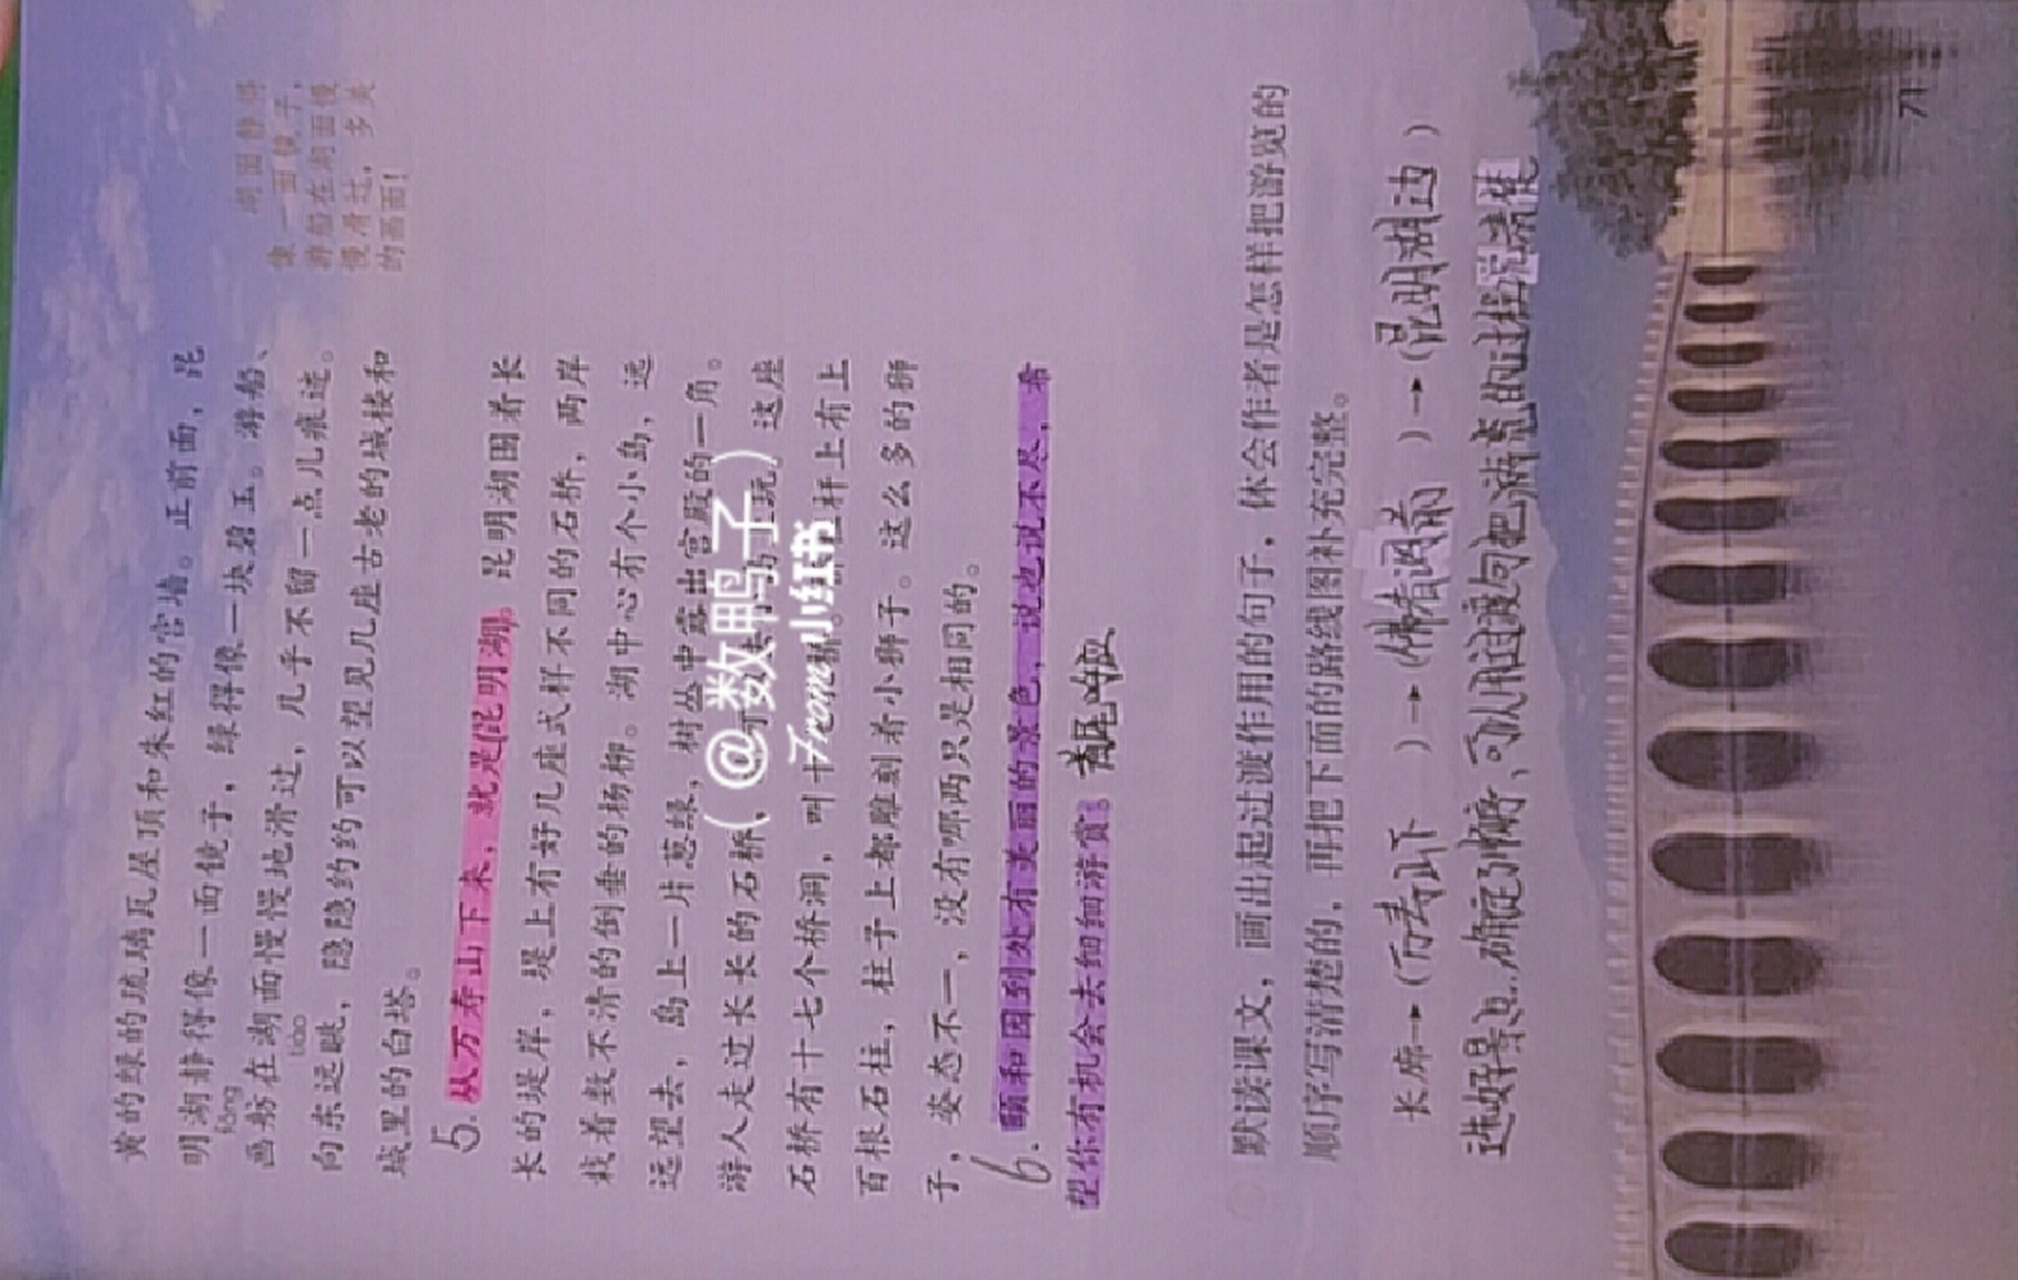 黄的绿的琉璃瓦屋顶和朱红的宫墙。正前面，昆
明湖静得像一面镜子，绿得像一块碧玉。游船、
画舫在湖面慢慢地滑过，几乎不留一点儿痕迹。
fǎng
向东远眺，隐隐约约可以望见几座古老的城楼和
tiào
城里的白塔。
湖面静得
像一面镜子，
游船在湖面慢
慢滑过，多美
的画面！
5.从万寿山下来，就是昆明湖。昆明湖围着长
长的堤岸，堤上有好几座式样不同的石桥，两岸
栽着数不清的倒垂的杨柳。湖中心有个小岛，远
远望去，岛上一片葱绿，树丛中露出宫殿的一角。
游人走过长长的石桥，玩。这座
石桥有十七个桥洞，叫十杆上有上
百根石柱，柱子上都雕刻着小狮子。这么多的狮
子，姿态不一，没有哪两只是相同的。
6.颐和园到处有美丽的景色，说也说不尽，希
望你有机会去细细游赏。首尾呼应
(@数鸭子)
From小红书
默读课文，画出起过渡作用的句子，体会作者是怎样把游览的
顺序写清楚的，再把下面的路线图补充完整。
长廊→(万寿山下)→(佛香阁前)→(昆明湖边)
选好景点，确定顺序、可以用过渡句把游览的过程说清楚
71